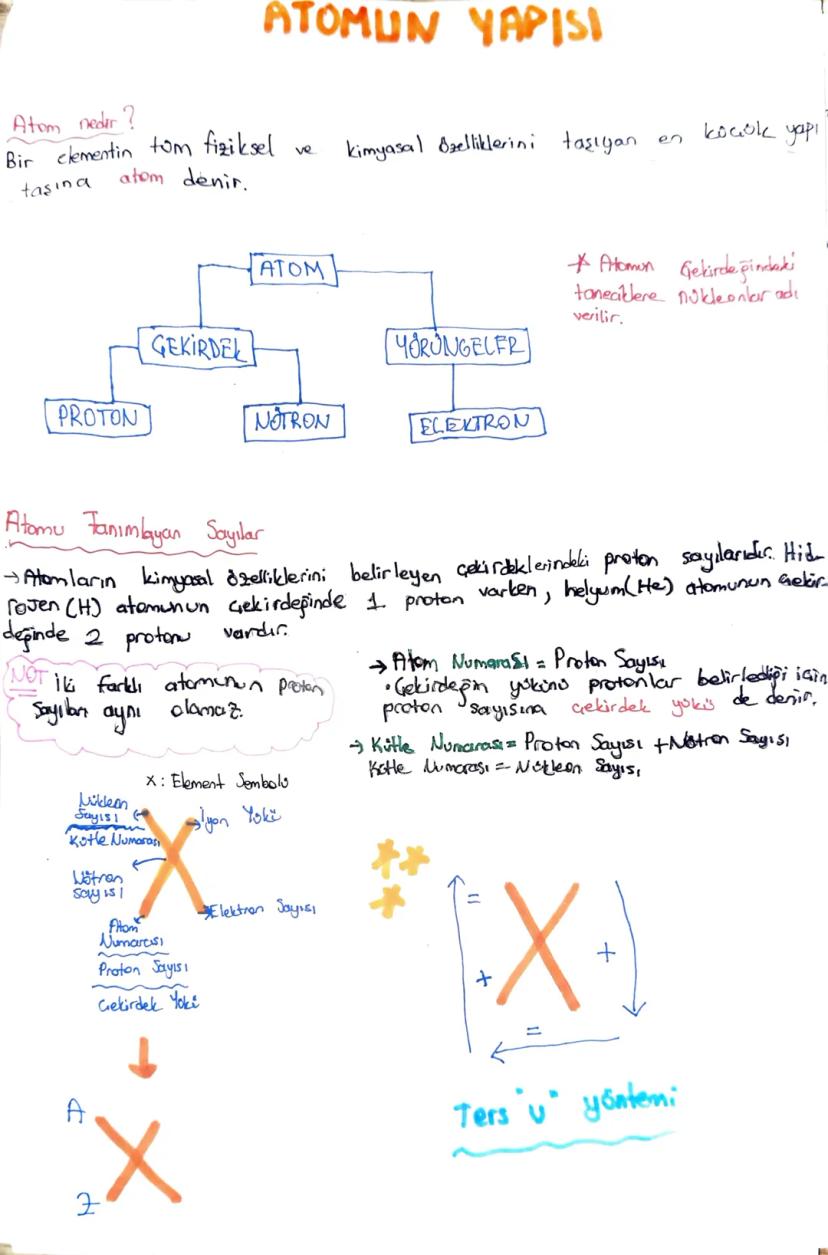 ATOMUN YAPISI
Atom nedir?
Bir elementin tüm fiziksel ve kimyasal özelliklerini taşıyan en küçük yapı
taşına atom denir.
ATOM
* Atomun Çekirdeğindeki
taneciklere nükleonlar adı
verilir.
ÇEKİRDEK
YÖRÜNGELER
PROTON
NÖTRON
ELEKTRON
Atomu Tanımlayan Sayılar
→ Atomların kimyasal özelliklerini belirleyen çekirdeklerindeki proton sayılarıdır. Hid-
rojen (H) atomunun çekirdeğinde 1 proton varken, helyum (He) atomunun çekir-
değinde 2 protonu vardır.
NOT İki farklı atomunun proton
Sayıları aynı olamaz.
→ Atom Numarası = Proton Sayısı
• Çekirdeğin yükünü protonlar belirlediği için
proton sayısına çekirdek yükü de denir.
→ Kütle Numarası = Proton Sayısı + Nötron Sayısı
Kütle Numarası = Nükleon Sayısı
X: Element Sembolü
Nükleon
Sayısı
Kütle Numarası
İyon Yükü
Nötron
sayısı
Elektron Sayısı
Atom
Numarası
Proton Sayısı
Çekirdek Yükü
X
= X +
+
=
Ters "U" yöntemi
A
X
Z